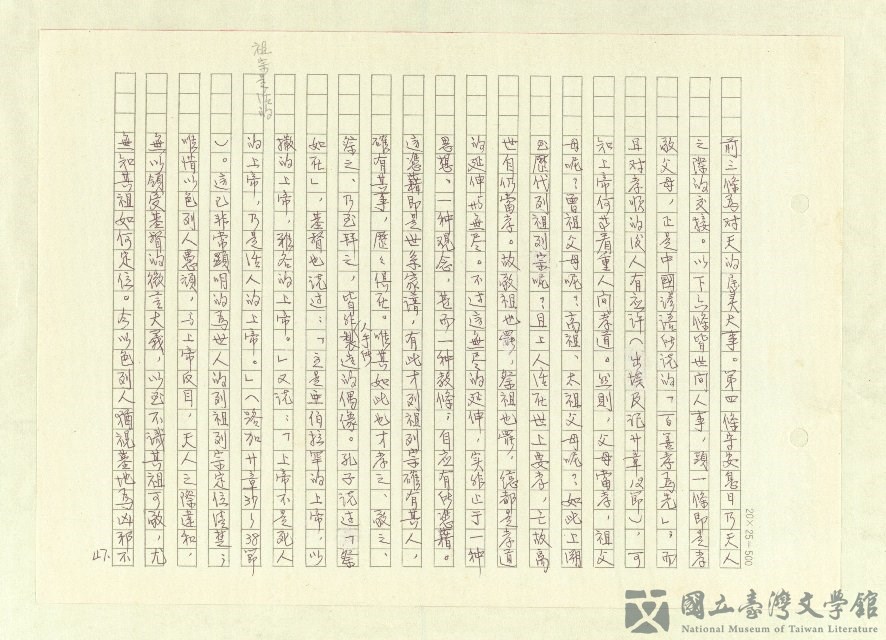 前三條為對天的完美大事。第四條守安息日乃天人
之際的交接。以下六條皆世間人事,頭一條即是孝
敬父母,正是中國諺語所說的「百善孝為先」。而
且對孝順的後人有應許(出埃及記廿章12節),可
知上帝何其看重人間孝道。然則,父母當孝,祖父
母呢?曾祖父母呢?高祖、太祖父母呢?如此上溯
已歷代列祖列宗呢?且上人活在世上要孝,亡故离
世自仍當孝。故敬祖也罷,祭祖也罷,億都是孝道
的延伸與無尽。不过這無尽的延伸,实非止于一种
思想。一种观念,甚而一种教條;自應有所憑藉。
這憑藉即是世系家譜,有此才列祖列宗確有其人,
確有其事,歷々俱在。唯其如此也才孝之、敬之、
祭之、乃至拜之,皆非製造的偶像。孔子说过「祭
如在」,基督也说过:「主是亞伯拉罕的上帝,以
撒的上帝,雅各的上帝。」又说:「上帝不是死人
祖宗是活的
的上帝,乃是活人的上帝。」(路加廿章37~38節
)。這已非常顯明的為世人的列祖列宗定位清楚;
唯惜以色列人愚頑,与上帝反目,天人之際違和,
無以領受基督的微言大義,以至不識其祖可敬,尤
無知其祖如何定位。今以色列人猶視墓地為凶邪不
47.
20×25=500
國立臺灣文學館
National Museum of Taiwan Literature